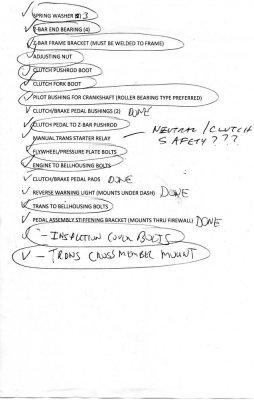 ✓ SPRING WASHER (2) 3
✓ Z-BAR END BEARING (4)
✓ Z-BAR FRAME BRACKET (MUST BE WELDED TO FRAME)
✓ ADJUSTING NUT
✓ CLUTCH PUSHROD BOOT
✓ CLUTCH FORK BOOT
✓ PILOT BUSHING FOR CRANKSHAFT (ROLLER BEARING TYPE PREFERRED)
✓ CLUTCH/BRAKE PEDAL BUSHINGS (2) DONE
✓ CLUTCH PEDAL TO Z-BAR PUSHROD
MANUAL TRANS STARTER RELAY – NEUTRAL/CLUTCH SAFETY???
✓ FLYWHEEL/PRESSURE PLATE BOLTS
✓ ENGINE TO BELLHOUSING BOLTS
✓ CLUTCH/BRAKE PEDAL PADS DONE
✓ REVERSE WARNING LIGHT (MOUNTS UNDER DASH) DONE
✓ TRANS TO BELLHOUSING BOLTS
✓ PEDAL ASSEMBLY STIFFENING BRACKET (MOUNTS THRU FIREWALL) DONE
✓ - INSPECTION COVER BOLTS
✓ - TRANS CROSSMEMBER MOUNT